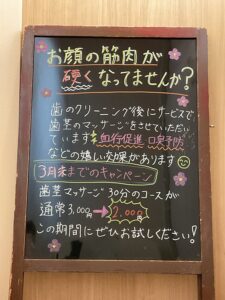 お顔の筋肉が
硬くなってませんか?
歯のクリーニング後にサービスで
歯茎のマッサージをさせていただい
ています 血行促進 口臭予防
などの嬉しい効果があります
3月末までのキャンペーン
歯茎マッサージ 30分のコースが
通常3,000円→2,000円
この期間にぜひお試しください!